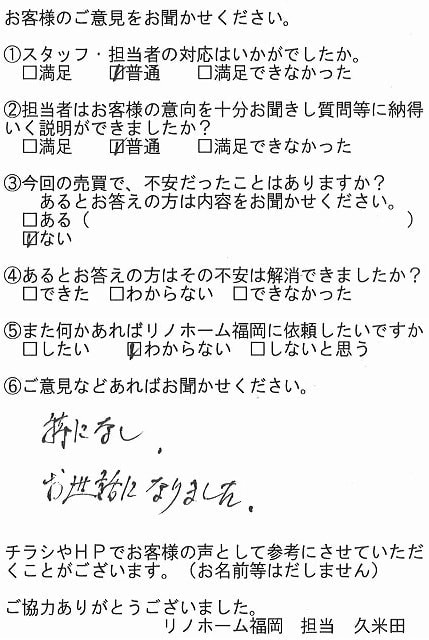 お客様のご意見をお聞かせください。
①スタッフ・担当者の対応はいかがでしたか。
□満足 ☑普通 □満足できなかった
②担当者はお客様の意向を十分お聞きし質問等に納得
いく説明ができましたか？
□満足 ☑普通 □満足できなかった
③今回の売買で、不安だったことはありますか？
あるとお答えの方は内容をお聞かせください。
□ある（ ）
☑ない
④あるとお答えの方はその不安は解消できましたか？
□できた □わからない □できなかった
⑤また何かあればリノホーム福岡に依頼したいですか
□したい ☑わからない □しないと思う
⑥ご意見などあればお聞かせください。
特になし.
お世話になりました.
チラシやＨＰでお客様の声として参考にさせていただ
くことがございます。（お名前等はだしません）
ご協力ありがとうございました。
リノホーム福岡 担当 久米田